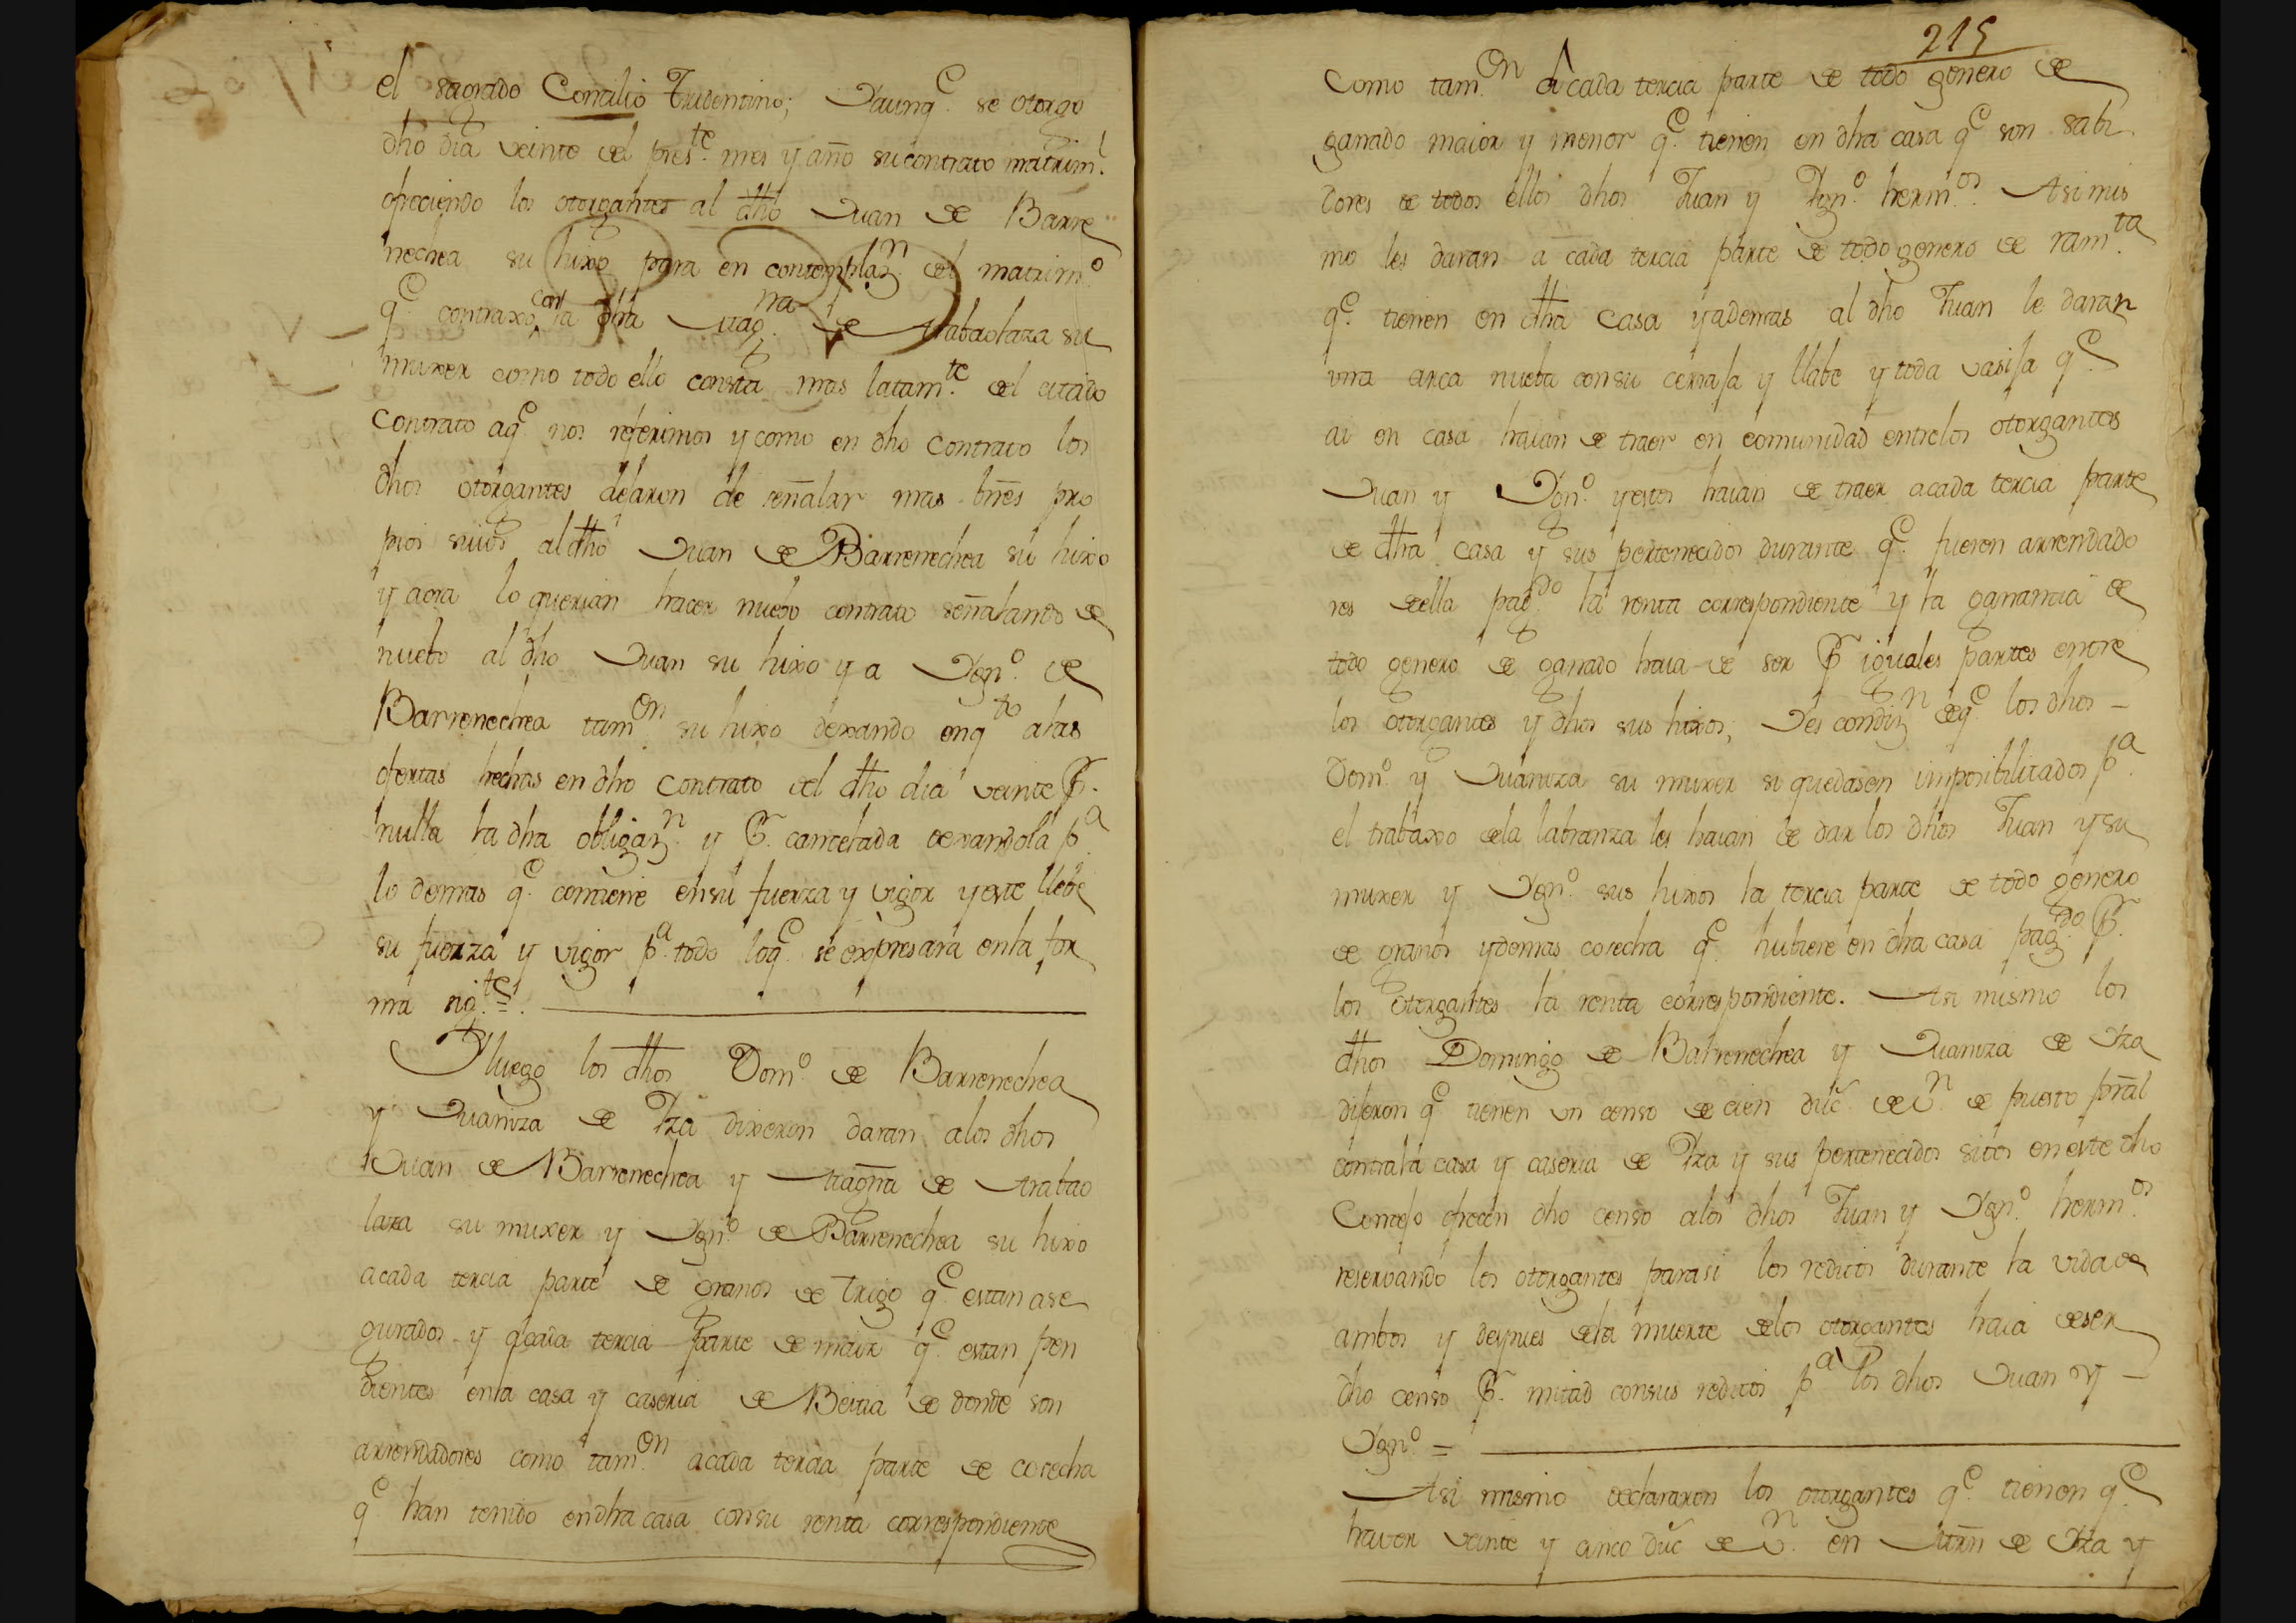 el sagrado Concilio Tridentino; Yaunq.e se otorgo
dho dia veinte del pres.te mes y año su contrato matrim.l
ofreciendo los otorgantes al dho Juan de Barre
nechea su hixo para en contemplaz.n del matrim.o
q.e contraxo con la dha Mag.na de Arabaolaza su
muxer como todo ello consta mas latam.te del citado
Contrato aq.e nos referimos y como en dho Contrato los
dhos otorgantes dejaron de señalar mas bnēs pro
pios suios al dho Juan de Barrenechea su hixo
y aora lo querian hacer nuebo contrato señalando de
nuebo al dho Juan su hixo y a Ygn.o de
Barrenechea tam.en su hixo dexando enq.to alas
ofertas hechas en dho Contrato del dho dia veinte P.r
nulla la dha obligaz.n y P.r cancelada dexandola p.a
lo demas q.e contiene ensu fuerza y vigor y este llebe
su fuerza y vigor p.a todo loq.e se expresara enla for
ma sig.te =
Y luego los dhos Dom.o de Barrenechea
y Juaniza de Yza dixeron daran alos dhos
Juan de Barrenechea y Magna de Arabao
laza su muxer y Ygn.o de Barrenechea su hixo
acada tercia parte de granos de trigo q.e estan ase
gurados y acada tercia parte de maiz q.e estan pen
dientes enla casa y caseria de Beitia de donde son
arrendadores como tam.en acada tercia parte de cosecha
q.e han tenido endha casa consu renta correspondiente
215
Como tam.en a cada tercia parte de todo genero de
ganado maior y menor q.e tienen en dha casa q.e son sabi
dores de todos ellos dhos Juan y Ygn.o herm.os Asimis
mo les daran a cada tercia parte de todo genero de ram.ta
q.e tienen en dha Casa y ademas al dho Juan le daran
una arca nueba consu cerraja y llabe y toda vasija q.e
ai en casa haian de traer en comunidad entrelos otorgantes
Juan y Ygn.o y estos haian de traer acada tercia parte
de dha casa y sus pertenecidos durante q.e fueren arrendado
res de ella pag.do la renta correspondiente y la ganancia de
todo genero de ganado haia de ser P.r iguales partes entre
los otorgantes y dhos sus hixos; Yes condiz.n deq.e los dhos
Dom.o y Juaniza su muxer si quedasen imposibilitados p.a
el trabaxo dela labranza les haian de dar los dhos Juan y su
muxer y Ygn.o sus hixos la tercia parte de todo genero
de granos ydemas cosecha q.e hubiere en dha casa pag.do P.r
los otorgantes la renta correspondiente. Asi mismo los
dhos Domingo de Barrenechea y Juaniza de Yza
dijeron q.e tienen un censo de cien duc.s de v.n de puesto pral
contra la casa y caseria de Yza y sus pertenecidos sitos en este dho
Concejo ofrecen dho censo alos dhos Juan y Ygn.o herm.os
reservando los otorgantes para si los reditos durante la vida de
ambos y despues dela muerte delos otorgantes haia deser
dho censo P.r mitad consus reditos p.a los dhos Juan y
Ygn.o =
Asi mismo declararon los otorgantes q.e tienen q.e
haver veinte y cinco duc.s de v.n en Mrn de Yza y